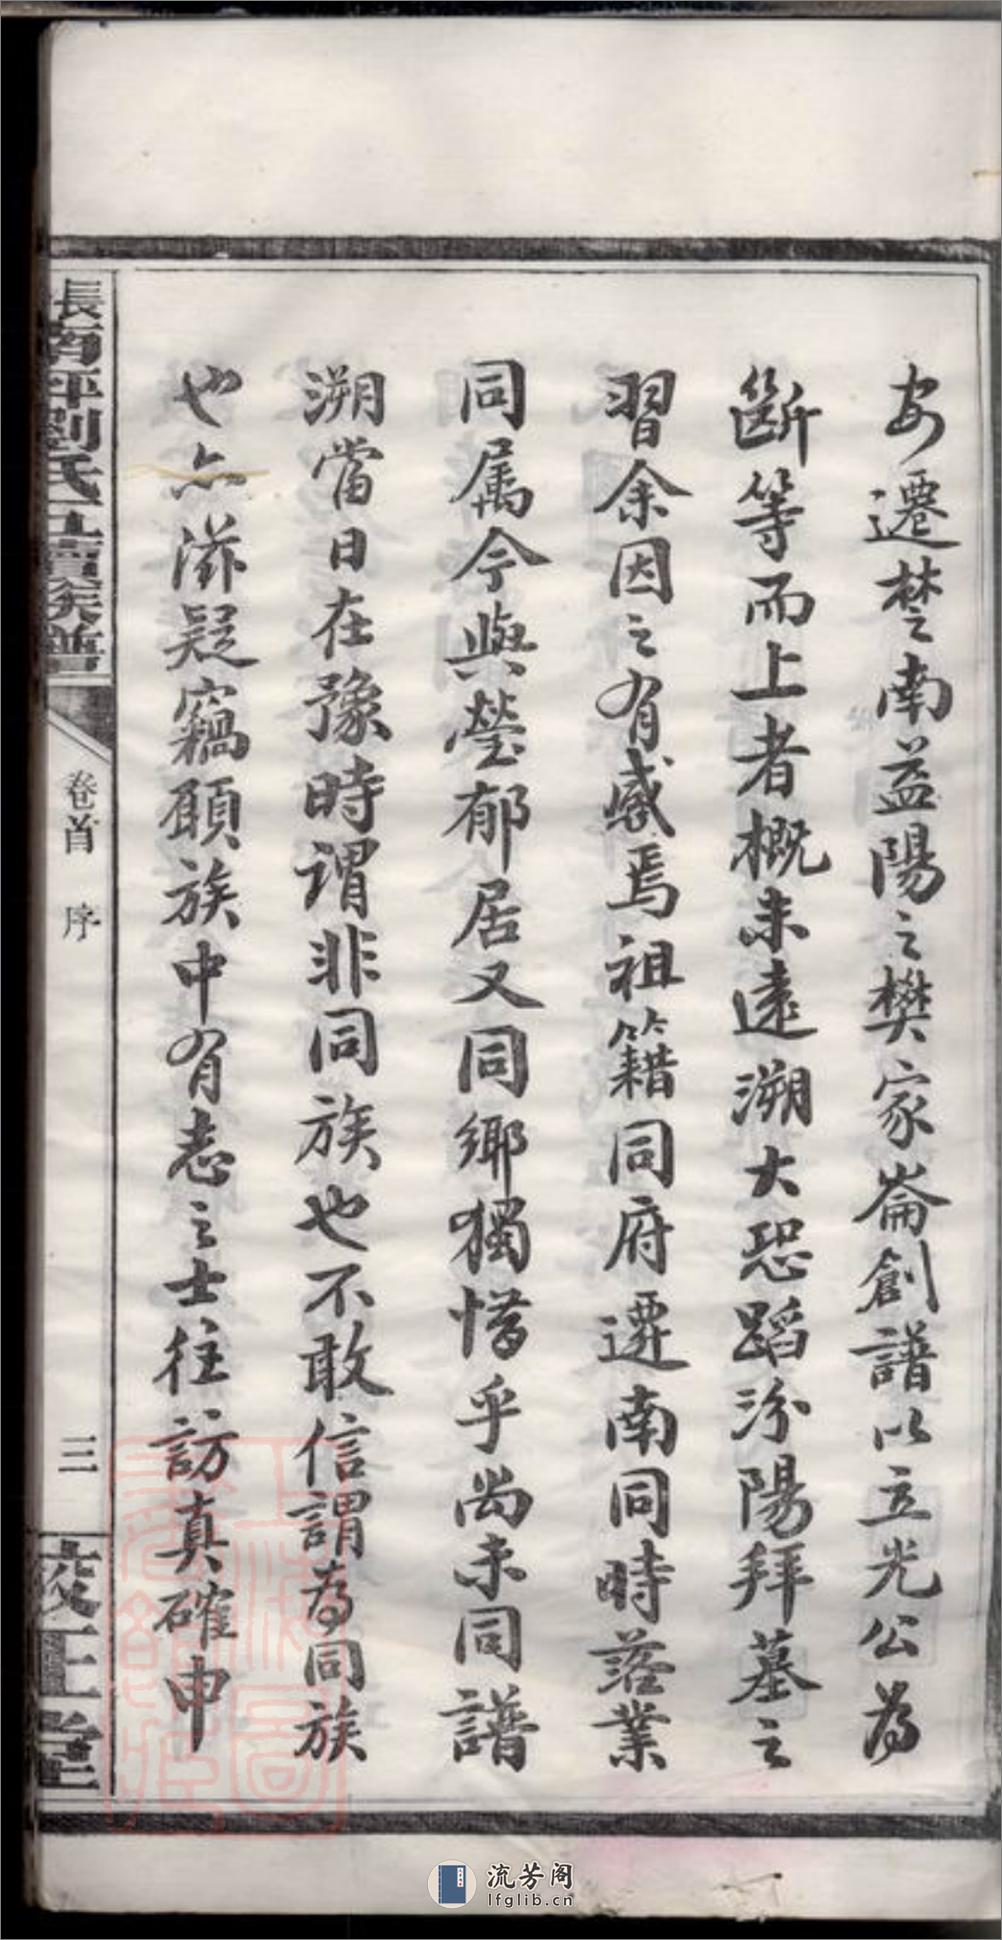 安遷楚南益陽之樊家崙創譜以立光公為
斷等而上者概未遠溯大恐蹈汾陽拜墓之
習余因之有感焉祖籍同府遷南同時落業
同属今與瑩郁居又同鄉獨惜乎尚未同譜
溯當日在豫時謂非同族也不敢信謂為同族
也亦滋疑竊願族中有志之士往訪真確申
長南坪劉氏五續族譜
卷首 序
三
校正堂
流芳阁
lfglib.cn